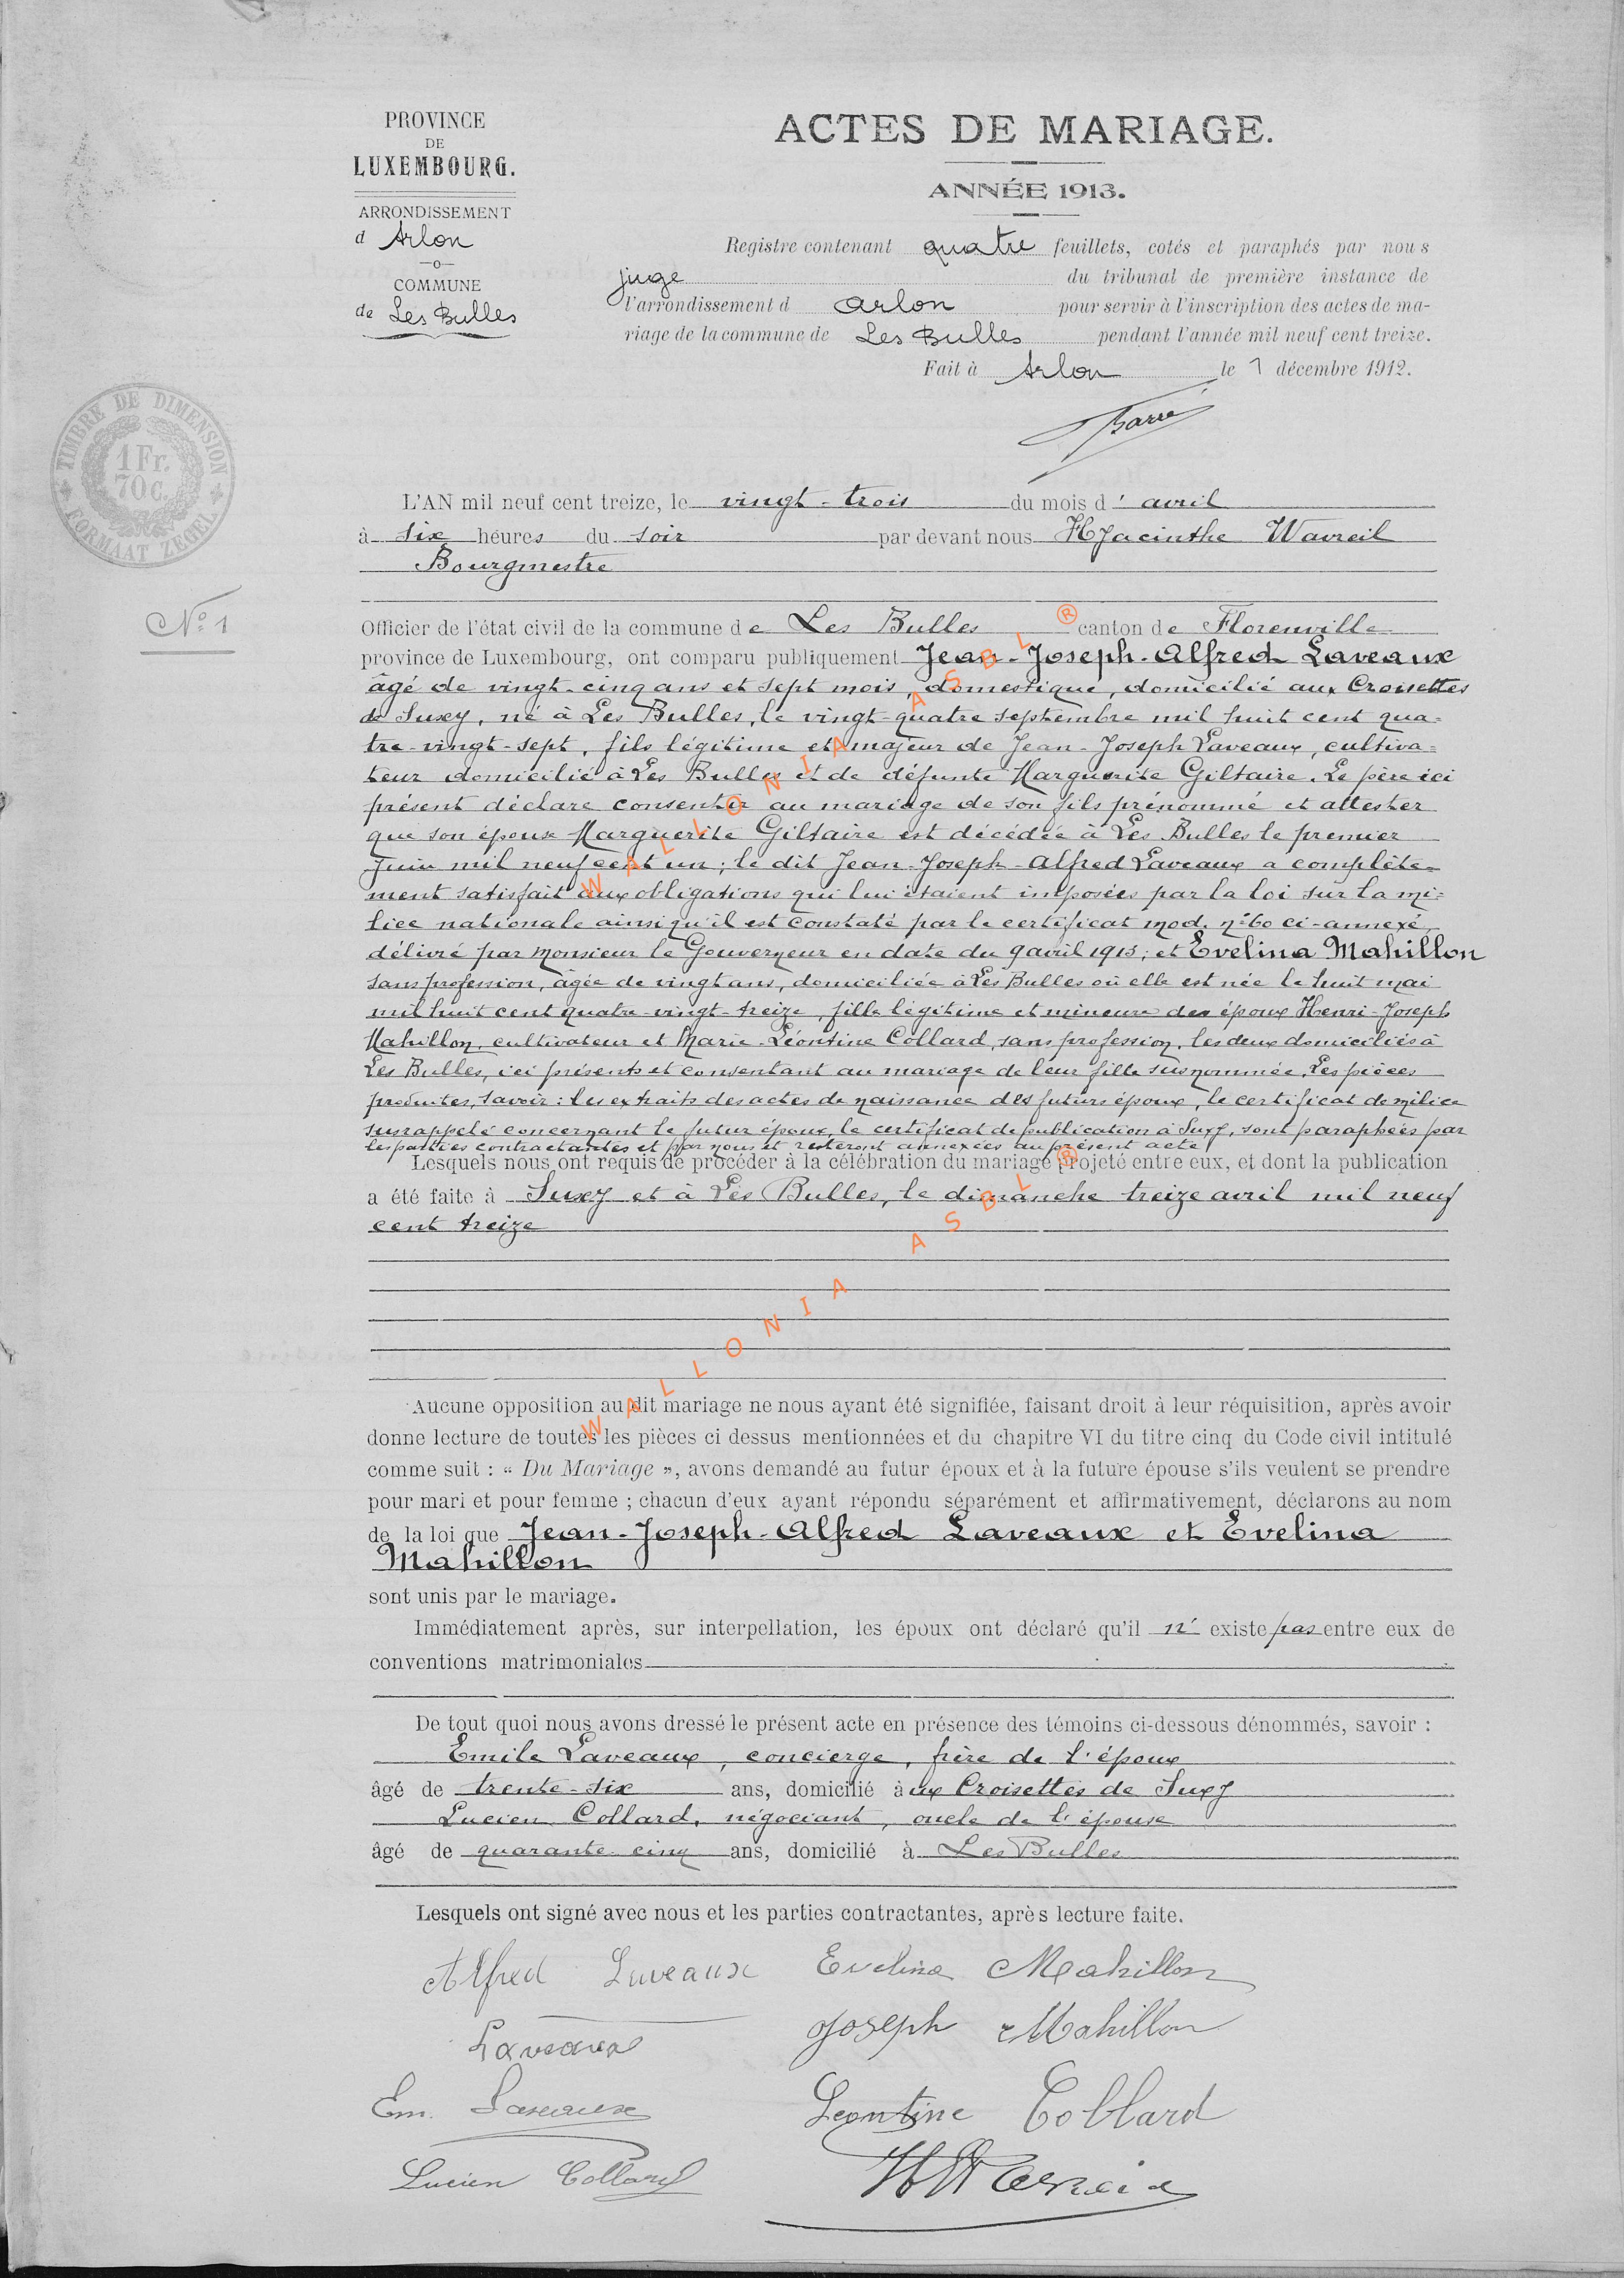 PROVINCE
DE
LUXEMBOURG.
ARRONDISSEMENT
d Arlon
—o—
COMMUNE
de Les Bulles
ACTES DE MARIAGE.
ANNÉE 1913.
Registre contenant quatre feuillets, cotés et paraphés par nous
juge du tribunal de première instance de
l'arrondissement d Arlon pour servir à l'inscription des actes de ma-
riage de la commune de Les Bulles pendant l'année mil neuf cent treize.
Fait à Arlon le 7 décembre 1912.
TIMBRE DE DIMENSION
1 Fr.
70 C.
FORMAAT ZEGEL
N° 1
L'AN mil neuf cent treize, le vingt-trois du mois d' avril
à six heures du soir par devant nous Hyacinthe Wavreil
Bourgmestre
Officier de l'état civil de la commune de Les Bulles canton de Florenville
province de Luxembourg, ont comparu publiquement Jean-Joseph-Alfred Laveaux
âgé de vingt-cinq ans et sept mois, domestique, domicilié aux Croisettes
de Suxy, né à Les Bulles, le vingt-quatre septembre mil huit cent qua=
tre-vingt-sept, fils légitime et majeur de Jean-Joseph Laveaux, cultiva=
teur domicilié à Les Bulles et de défunte Marguerite Giltaire. Le père ici
présent déclare consentir au mariage de son fils prénommé et attester
que son épouse Marguerite Giltaire est décédée à Les Bulles le premier
Juin mil neuf cent un; le dit Jean-Joseph-Alfred Laveaux a complète-
ment satisfait aux obligations qui lui étaient imposées par la loi sur la mi=
lice nationale ainsi qu'il est constaté par le certificat mod. n° 60 ci-annexé
délivré par Monsieur le Gouverneur en date du 9 avril 1913; et Evelina Mahillon
sans profession, âgée de vingt ans, domiciliée à Les Bulles où elle est née le huit mai
mil huit cent quatre-vingt-treize, fille légitime et mineure des époux Henri-Joseph
Mahillon, cultivateur et Marie-Léontine Collard, sans profession, les deux domiciliés à
Les Bulles, ici présents et consentant au mariage de leur fille susnommée. Les pièces
produites, savoir: les extraits des actes de naissance des futurs époux, le certificat de milice
susrappelé concernant le futur époux, le certificat de publication à Suxy, sont paraphées par
les parties contractantes et par nous et resteront annexées au présent acte
Lesquels nous ont requis de procéder à la célébration du mariage projeté entre eux, et dont la publication
a été faite à Suxy et à Les Bulles, le dimanche treize avril mil neuf
cent treize
Aucune opposition au dit mariage ne nous ayant été signifiée, faisant droit à leur réquisition, après avoir
donne lecture de toutes les pièces ci dessus mentionnées et du chapitre VI du titre cinq du Code civil intitulé
comme suit : « Du Mariage », avons demandé au futur époux et à la future épouse s'ils veulent se prendre
pour mari et pour femme ; chacun d'eux ayant répondu séparément et affirmativement, déclarons au nom
de la loi que Jean-Joseph-Alfred Laveaux et Evelina
Mahillon
sont unis par le mariage.
Immédiatement après, sur interpellation, les époux ont déclaré qu'il n' existe pas entre eux de
conventions matrimoniales
De tout quoi nous avons dressé le présent acte en présence des témoins ci-dessous dénommés, savoir :
Emile Laveaux, concierge, frère de l'époux
âgé de trente-six ans, domicilié aux Croisettes de Suxy
Lucien Collard, négociant, oncle de l'épouse
âgé de quarante cinq ans, domicilié à Les Bulles
Lesquels ont signé avec nous et les parties contractantes, après lecture faite.
Alfred Laveaux Evelina Mahillon
Laveaux Joseph Mahillon
Em. Laveaux Leontine Collard
Lucien Collard HWavreil
WALLONIA ASBL ®
WALLONIA ASBL ®